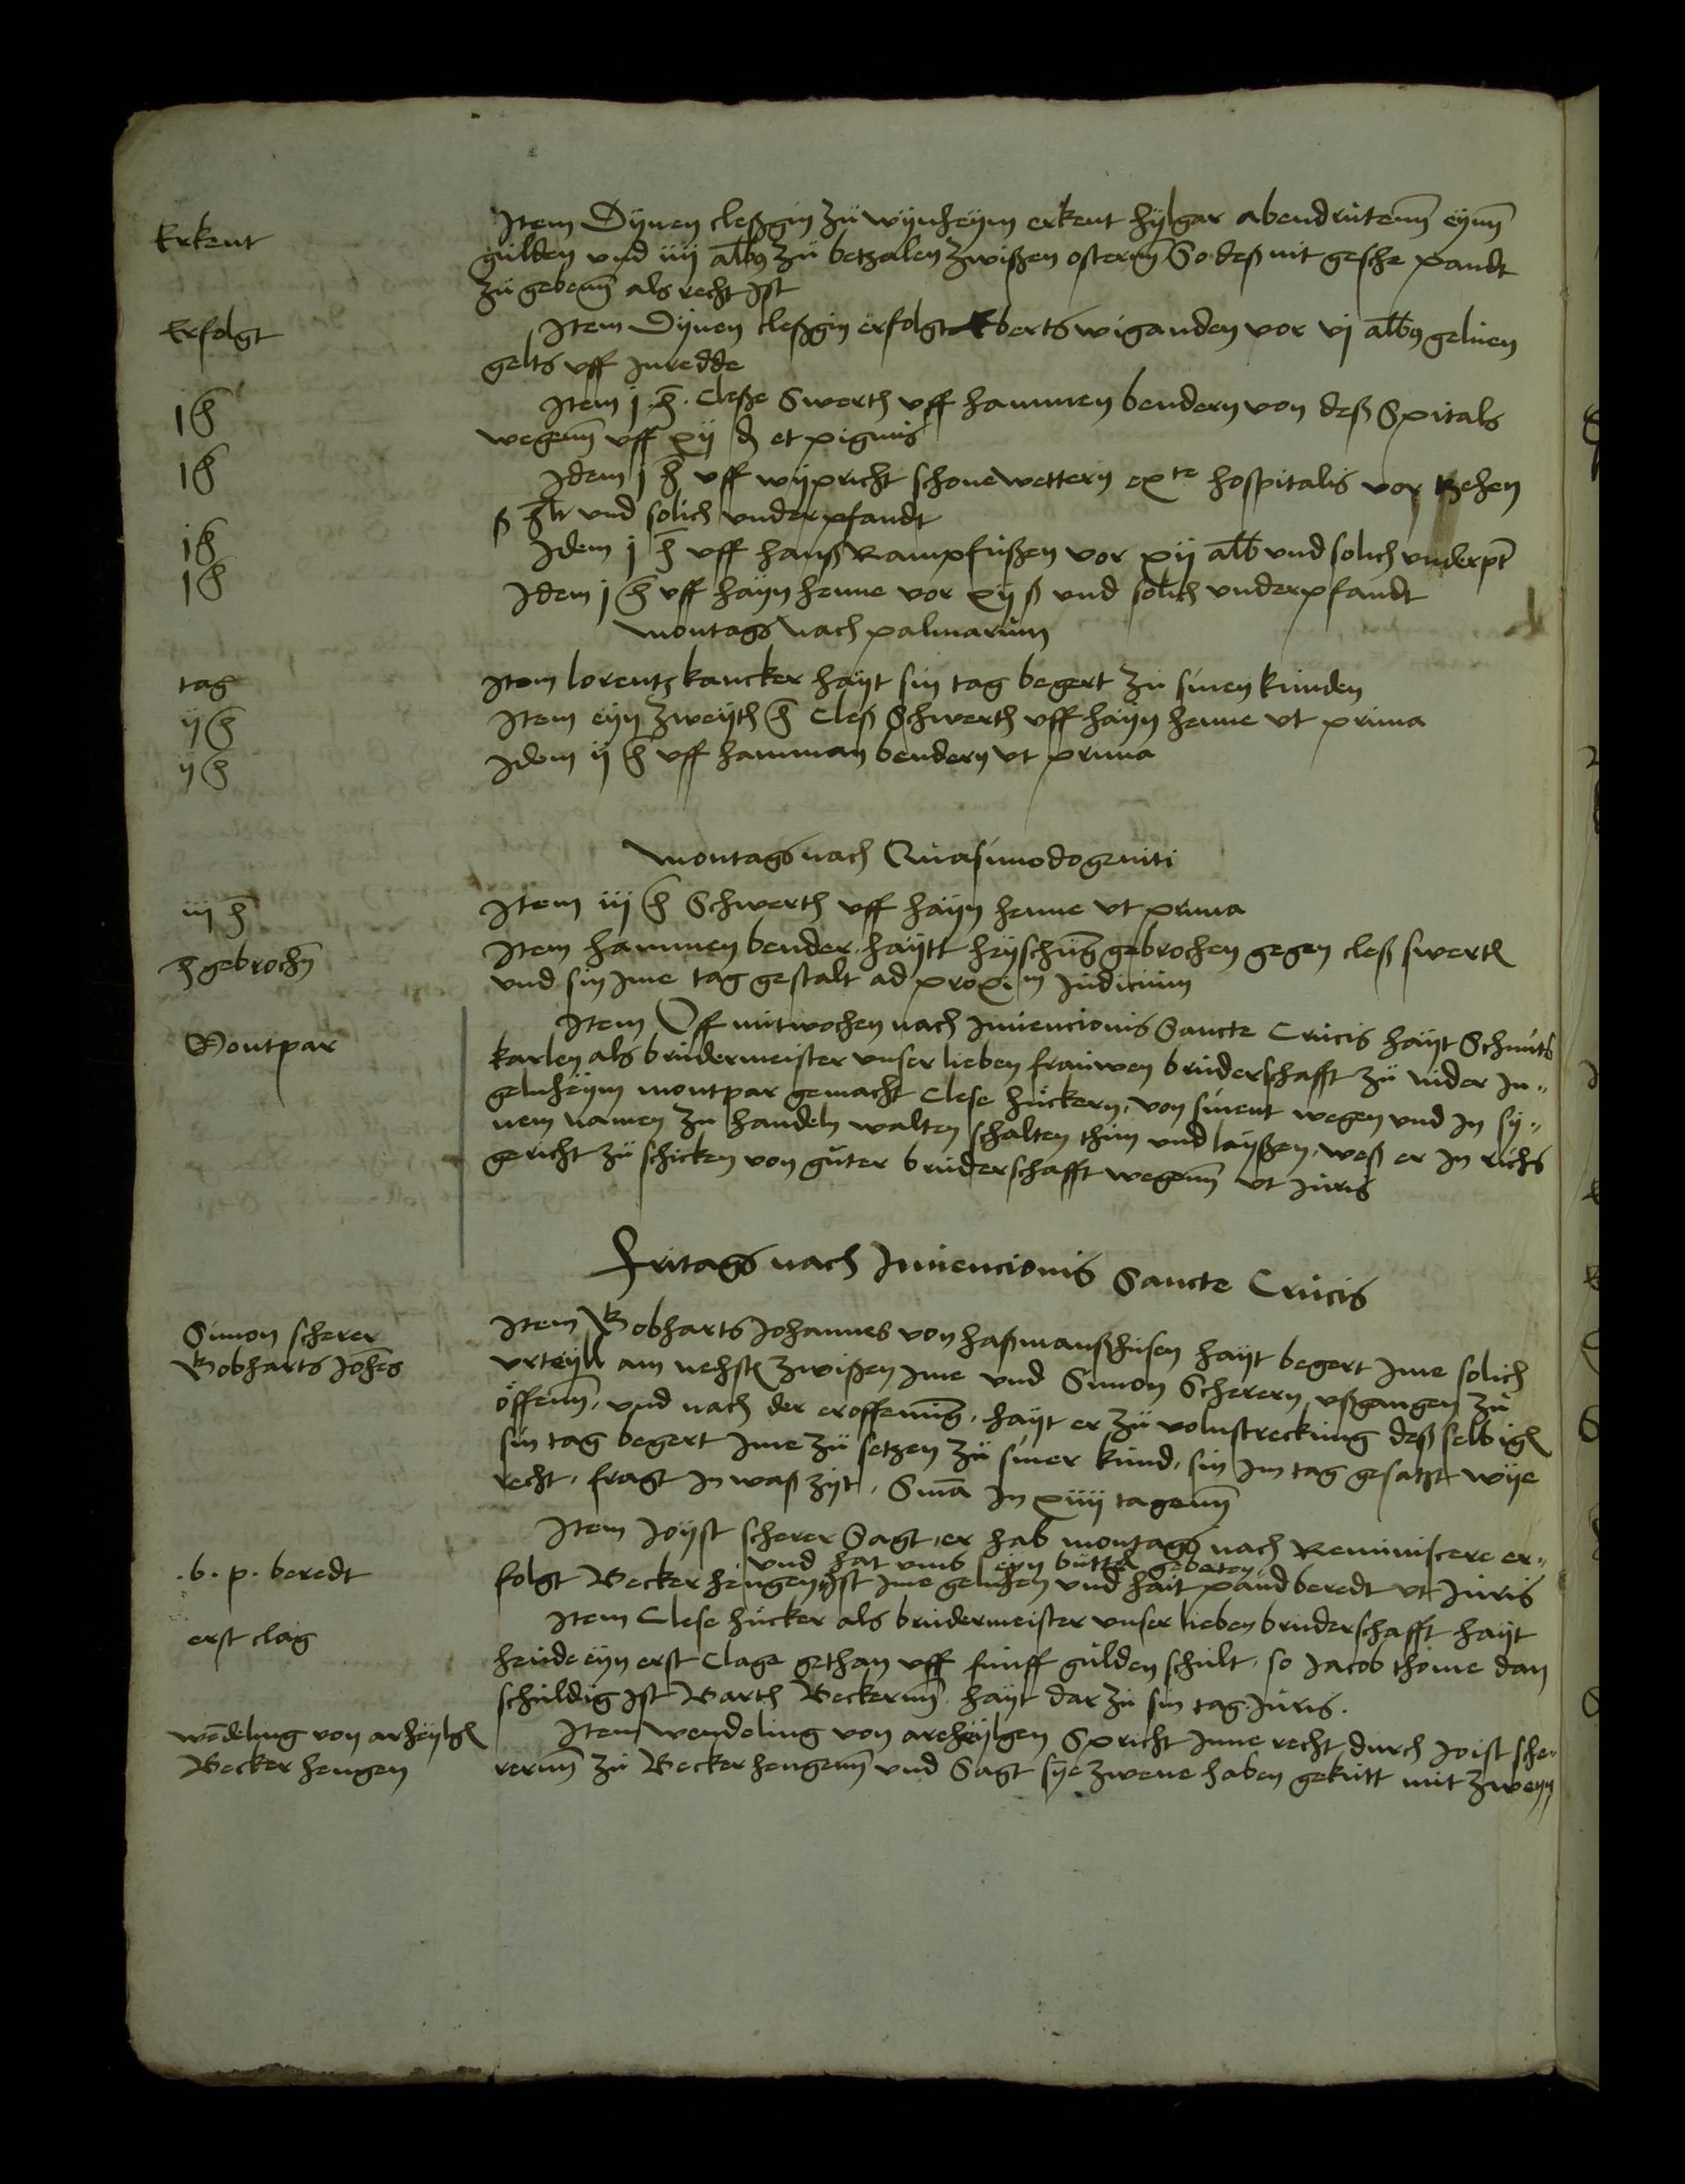 Erkent
Item Dynen cleßgin zu wynheym erkent hylgar abendrutenn eynn
gulden und iiij albg zu betzalen zwißen ostern So deß nit gesche pandt
zu gebenn als recht Ist
Erfolgt
Item Dynen cleßgin erfolgt Eberts wiganden vor vj albg geluen
gelts uff Inredde
j h
Item j h Cleße Swerth uff hammen bendern von deß Spitals
wegenn uff xij d et pignus
j h
Idem j h uff wypricht schonewettern ex te hospitalis vor zehen
ß hlr und solich underpfandt
j h
Idem j h uff hanß Rampfußen vor xij alb und solich underpt
j h
Idem j h uff hayn henne vor xij ß und solich underpfandt
Montags nach palmarum
tag
Item lorentz kancker hayt sin tag begert zu sinen kunden
ij h
Item eyn zweyth h Cleß Schwerth uff hayn henne ut prima
ij h
Idem ij h uff hamman bendern ut prima
Montags nach Quasimodogeniti
iij h
Item iij h Schwerth uff hayn henne ut prima
h gebrochn
Item hammen bender haytt heyschung gebrochen gegen cleß swerth
und sin Ime tag gestalt ad proxim Judicium
Montpar
Item Uff mitwochen nach Invencionis Sancte Crucis hayt Schmuts
karlen als brudermeister unser lieben frauwen bruderschafft zu nider In-
gelnheym montpar gemacht Clese huckern, von sinent wegen und In sy-
nem namen zu handeln walten schalten thun und layßen, weß er In richs
gericht zu schicken von guter bruderschafft wegenn ut Juris
Fritags nach Invencionis Sancte Crucis
Simon scherer
Bobharts Johes
Item Bobharts Johannes von haßmanßhusen hayt begert Ime solich
urteyll am nehsten zwißen Ime und Simon Scherern ußgangen zu
offenn, und nach der eroffenung, hayt er zu volnstreckung deß selbigen
sin tag begert Ime zu setzen zu siner kund, sin Im tag gesatzt wye
recht, fragt In waß zyt, Sma In xiiij tagenn
.b. p. beredt
Item Joyst scherer Sagt, er hab montags nach Reminiscere er-
und hat umb eyn büttel gebeten
folgt Becker hengen, Ist Ime geluhen und hait pand beredt ut Juris
erst clag
Item Clese hucker als brudermeister unser lieben bruderschafft hayt
heude eyn erst Clage gethan uff funff gulden schult, so Jacob thome dan
schuldig Ist Barth Beckernn, hayt dar zu sin tag Juris.
wendeling von arheylgen
Becker hengen
Item wendeling von areheylgen Spricht Inne recht durch Joist sche-
rernn zu Becker hengenn und Sagt sye zwene haben gekutt mit zweyn